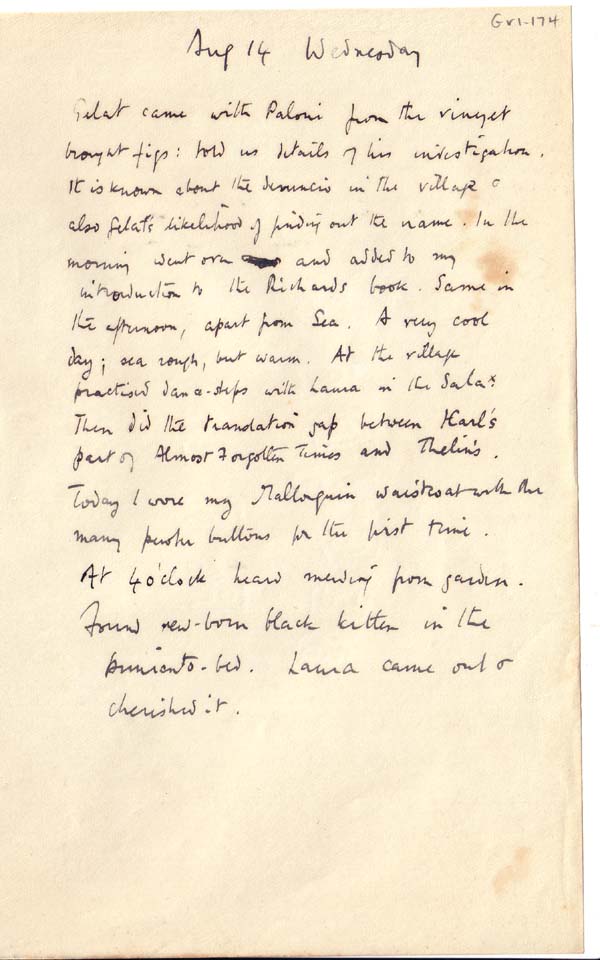 Gv1-174
Aug 14 Wednesday
Gelat came with Paloni from the vineyet
brought figs: told us details of his investigation.
It is known about the denuncio in the village &
also Gelat's likelihood of finding out the name. In the
morning went over and added to my
introduction to the Richards book. Same in
the afternoon, apart from Sea. A very cool
day; sea rough, but warm. At the village
practised dance-steps with Laura in the Sala x.
Then did the translation gap between Karl's
part of Almost Forgotten Times and Thelin's.
Today I wore my Mallorquin waistcoat with the
many pewter buttons for the first time.
At 4 o'clock heard mewing from garden.
Found new-born black kitten in the
pimiento-bed. Laura came out &
cherished it.